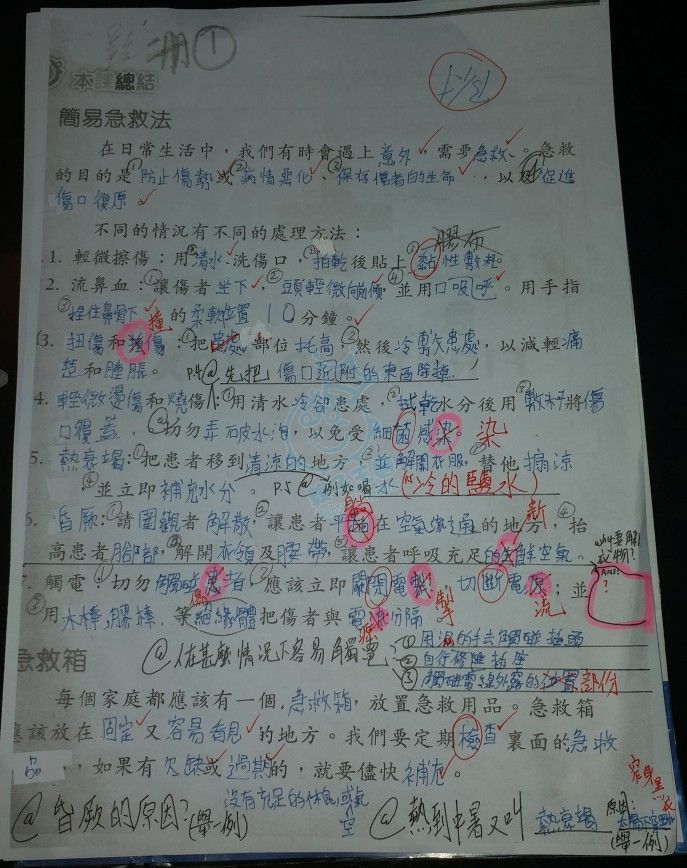 ①
本課總結
簡易急救法
在日常生活中，我們有時會遇上意外，需要急救。急救
的目的是①防止傷勢或②病情惡化、③保存傷者的生命，以及④促進
傷口復原
不同的情況有不同的處理方法：
膠布
1. 輕微擦傷：用①清水洗傷口，②拍乾後貼上③黏性敷料。
2. 流鼻血：①讓傷者坐下，②頭輕微傾，④並用口呼吸。用手指
③捏住鼻骨下的柔軟位置10分鐘。
撞
3. 扭傷和撞傷：①把患處部位托高，②然後冷敷患處，以減輕痛
楚和腫脹。 P4@先把傷口附近的東西除掉
4. 輕微燙傷和燒傷：①用清水冷卻患處，②拭乾水分後用③敷料將傷
口覆蓋 ④切勿弄破水泡，以免受細菌感染。染
5. 熱衰竭：①把患者移到清涼的地方，②並解開衣服，③替他搧涼
④並立即補充水分。P.5@例如喝水(冷的鹽水)
6. 昏厥：①請圍觀者解散，②讓患者平躺在空氣流通的地方，④抬
新
高患者腳部，③解開衣領及腰帶，讓患者呼吸充足的新鮮空氣。
ANS:
?
7. 觸電：①切勿觸碰患者，應該立即關閉電掣，切斷電源；並
掣
流
②用木棒，膠棒，等絕緣體把傷者與電源分隔
@在甚麼情況下容易觸電
①用濕的手去觸碰插頭
②自行修理插座
③觸碰電線外露的位置部份
急救箱
每個家庭都應該有一個急救箱，放置急救用品。急救箱
應該放在固定又容易看見的地方。我們要定期檢查裏面的急救
品，如果有欠缺或過期的，就要儘快補充。
@昏厥的原因？(舉一例)
沒有充足的休息或氧
空
@熱到中暑又叫 熱衰竭
原因：
(舉一例)